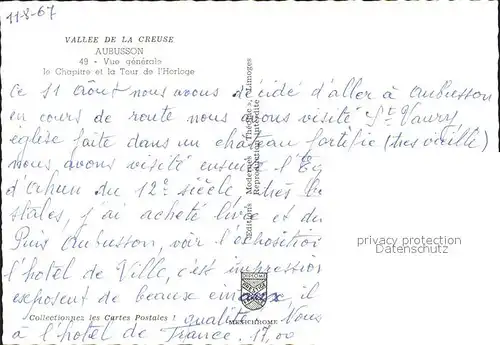 11-8-67
VALLEE DE LA CREUSE
AUBUSSON
49 - Vue générale
le Chapitre et la Tour de l'Horloge
Ce 11 Août nous avons décidé d'aller à Aubusson
en cours de route nous avons visité St Vaury
église faite dans un château fortifié (très vieille)
nous avons visité ensuite l'Eg
d'Ahun du 12e siècle, très
stales, j'ai acheté livre et du
Puis Aubusson, voir l'exposition
l'hotel de Ville, c'est impression
exposent de beaux émaux, il
qualité. Nous
à l'hotel de France. 17,00
Modernes « Théojac », Limoges
Reproduction interdite
privacy protection
Datenschutz
MEXICHROME
Collectionnez les Cartes Postales !